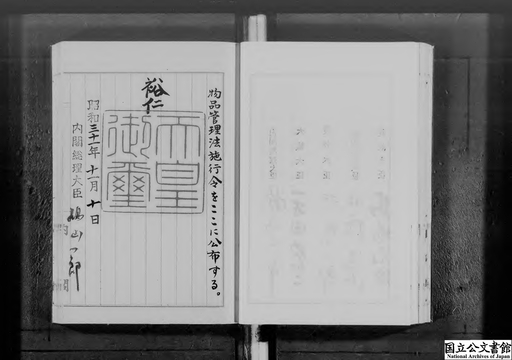 物品管理法施行令をここに公布する。
裕仁
天皇御璽
昭和三十一年十一月十日
内閣総理大臣 鳩山一郎
国立公文書館
National Archives of Japan